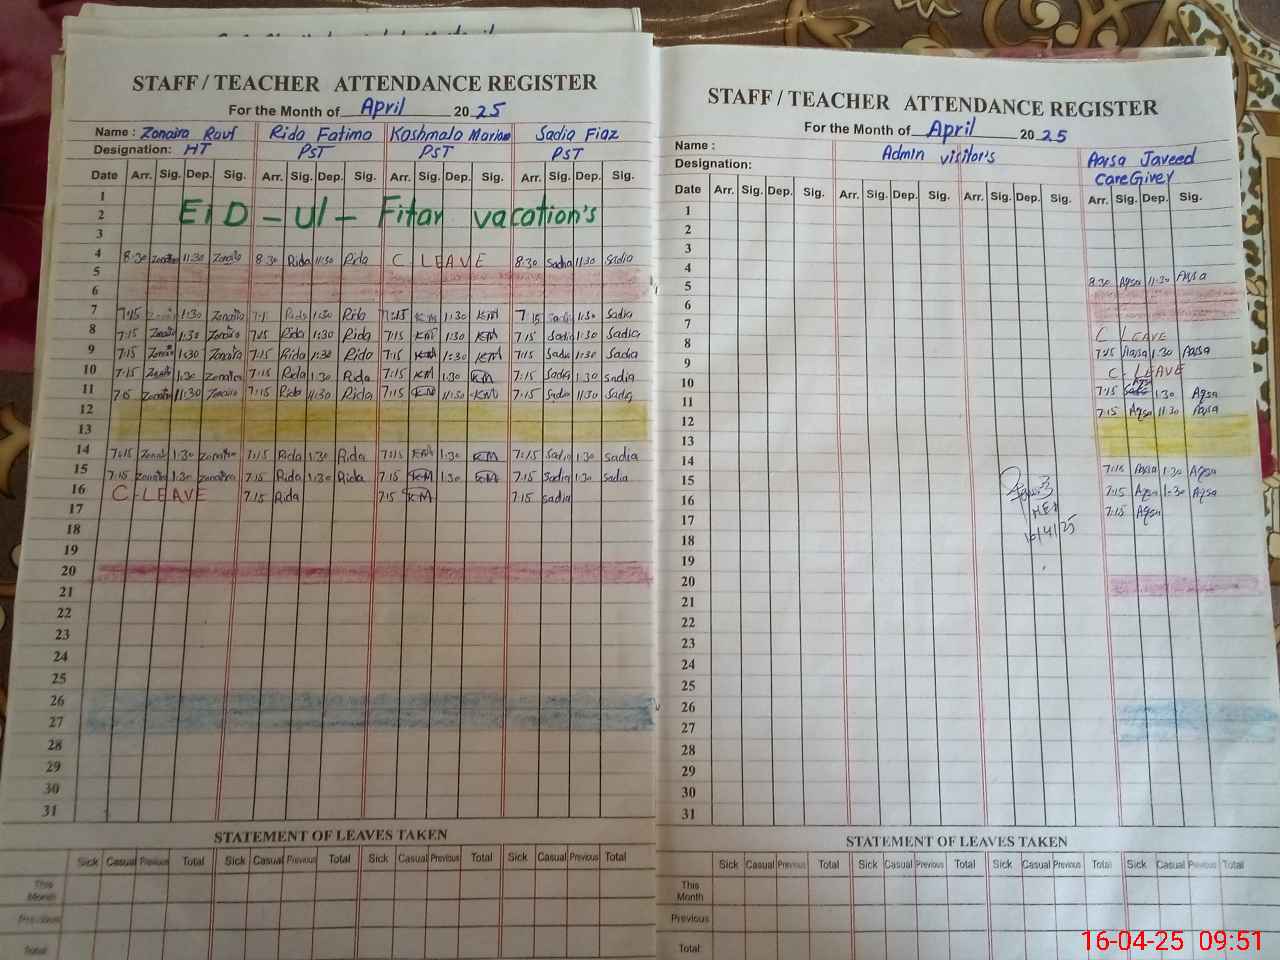 STAFF / TEACHER ATTENDANCE REGISTER
For the Month of April 2025
Name : Zonaira Rauf Rida Fatima Kashmala Mariam Sadia Fiaz
Designation: HT PST PST PST
Date Arr. Sig. Dep. Sig. Arr. Sig. Dep. Sig. Arr. Sig. Dep. Sig. Arr. Sig. Dep. Sig.
1
2 EiD - ul - Fitar vacation's
3
4 8:30 Zonaira 11:30 Zonaira 8:30 Rida 11:30 Rida C. LEAVE 8:30 Sadia 11:30 Sadia
5
6
7 7:15 1:30 Zonaira Rida 1:30 Rida 7:15 KM 1:30 KM 7:15 Sadia 1:30 Sadia
8 7:15 Zonaira 1:30 Zonaira 7:15 Rida 1:30 Rida 7:15 KM 1:30 KM 7:15 Sadia 1:30 Sadia
9 7:15 Zonaira 1:30 Zonaira 7:15 Rida 1:30 Rida 7:15 KM 1:30 KM 7:15 Sadia 1:30 Sadia
10 7:15 Zonaira 1:30 Zonaira 7:15 Rida 1:30 Rida 7:15 KM 1:30 KM 7:15 Sadia 1:30 Sadia
11 7:15 Zonaira 11:30 Zonaira 7:15 Rida 11:30 Rida 7:15 KM 11:30 KM 7:15 Sadia 11:30 Sadia
12
13
14 7:15 Zonaira 1:30 Zonaira 7:15 Rida 1:30 Rida 7:15 KM 1:30 KM 7:15 Sadia 1:30 Sadia
15 7:15 Zonaira 1:30 Zonaira 7:15 Rida 1:30 Rida 7:15 KM 1:30 KM 7:15 Sadia 1:30 Sadia
16 C. LEAVE 7:15 Rida 7:15 KM 7:15 Sadia
17
18
19
20
21
22
23
24
25
26
27
28
29
30
31
STATEMENT OF LEAVES TAKEN
Sick Casual Previous Total Sick Casual Previous Total Sick Casual Previous Total Sick Casual Previous Total
This Month
Previous
Total
STAFF / TEACHER ATTENDANCE REGISTER
For the Month of April 2025
Name : Admin visitor's Aqsa Javeed
Designation: CareGiver
Date Arr. Sig. Dep. Sig. Arr. Sig. Dep. Sig. Arr. Sig. Dep. Sig. Arr. Sig. Dep. Sig.
1
2
3
4
5 8:30 Aqsa 11:30 Aqsa
6
7
8 C LEAVE
9 7:15 Aqsa 1:30 Aqsa
10 C. LEAVE
11 7:15 1:30 Aqsa
12 7:15 Aqsa 11:30 Aqsa
13
14
15 7:15 Aqsa 1:30 Aqsa
16 7:15 Aqsa 1:30 Aqsa
17 7:15 Aqsa
16/4/25
18
19
20
21
22
23
24
25
26
27
28
29
30
31
STATEMENT OF LEAVES TAKEN
Sick Casual Previous Total Sick Casual Previous Total Sick Casual Previous Total Sick Casual Previous Total
This Month
Previous
Total
16-04-25 09:51